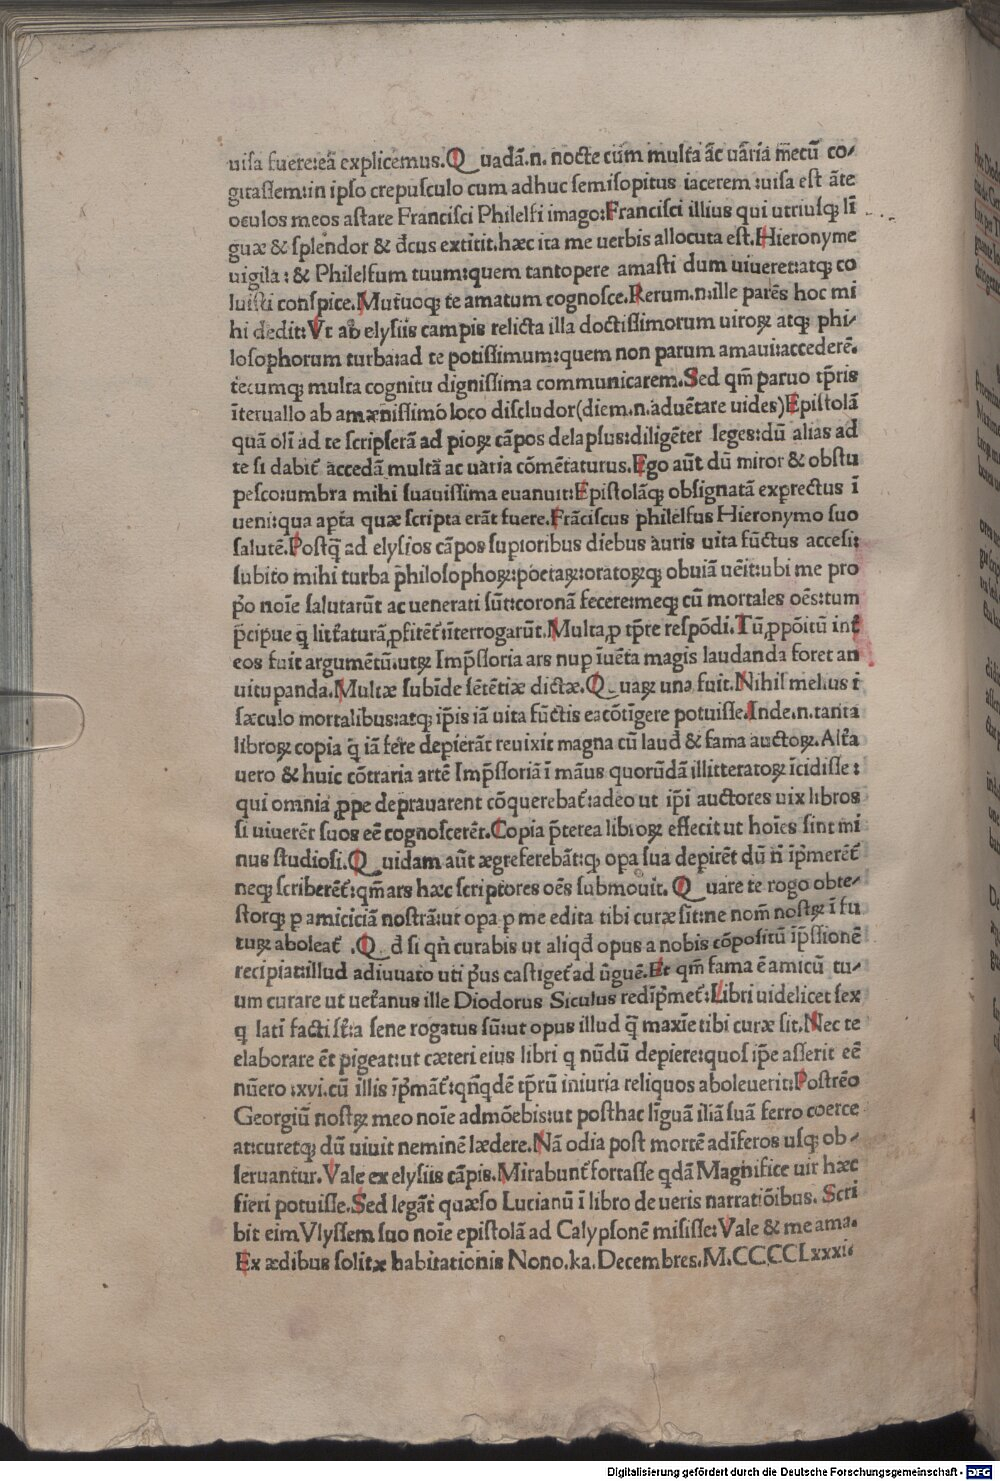 uiſa fuere:eā explicemus.Q uadā.n. nocte cum multa āc uāria mecū co-
gitaſſem:in ipſo crepuſculo cum adhuc ſemiſopitus iacerem :uiſa eſt āte
oculos meos aſtare Franciſci Philelfi imago:Franciſci illius qui utriuſq; lī
guæ & ſplendor & dcus extitit.hæc ita me uerbis allocuta eſt.Hieronyme
uigila : & Philelfum tuum:quem tantopere amaſti dum uiueret:atq; co
luiſti conſpice.Mutuoq; te amatum cognoſce.Rerum.n.ille parēs hoc mi
hi dedit:Vt ab elyſiis campis relicta illa doctiſſimorum uiroꝝ atq; phi-
loſophorum turba:ad te potiſſimum:quem non parum amaui:accederē.
tecumq; multa cognitu digniſſima communicarem.Sed qm̄ paruo tp̄ris
īteruallo ab amæniſſimo loco diſcludor(diem.n.aduētare uides)Epiſtolā
quā olī ad te ſcripſerā ad pioꝝ cāpos delapſus:diligēter leges:dū alias ad
te ſi dabit̄ accedā multa ac uaria cōmētaturus.Ego aūt dū miror & obſtu
peſco:umbra mihi ſuauiſſima euanuit:Epiſtolāq; obſignatā exprectus ī
ueni:qua apta quæ ſcripta erāt fuere.Frāciſcus philelfus Hieronymo ſuo
ſalutē.Poſtq̄ ad elyſios cāpos ſuprioribus diebus auris uita fūctus acceſi:
ſubito mihi turba p̄hiloſophoꝝ:poetaꝝ:oratoꝝq; obuiā uēit:ubi me pro
p̄o noīe ſalutarūt ac uenerati ſūt:coronā fecere:meq; cū mortales oēs:tum
p̄cipue q litt̄aturā ꝓfitēt̄:īterrogarūt.Multa ꝓ tp̄re reſpōdi.Tū ꝓpōitū int̄
eos fuit argumētū.utꝝ Imp̄ſſoria ars nup īuēta magis laudanda foret an
uitupanda.Multæ ſubīde ſētētiæ dictæ.Q uaꝝ una fuit.Nihil melius ī
ſæculo mortalibus:atq; ip̄is iā uita fūctis ea cōtīgere potuiſſe.Inde.n.tanta
libroꝝ copia q̄ iā fere depierāt reuixit magna cū laud & fama auctoꝝ.Alt̄a
uero & huic cōtraria artē Imp̄ſſoriā ī māus quorūdā illitteratoꝝ īcidiſſe :
qui omnia ꝓpe deprauarent cōquerebat̄:adeo ut ip̄i auctores uix libros
ſi uiuerēt ſuos eē cognoſcerēt.Copia p̄terea libroꝝ effecit ut hoīes ſint mi
nus ſtudioſi.Q uidam aūt ægreferebāt:q; opa ſua depirēt dū n̄ īp̄merēt̄
neq; ſcriberēt̄:qm̄ ars hæc ſcriptores oēs ſubmouit. Q uare te rogo obte-
ſtorq; p amiciciā noſtrā:ut opa p me edita tibi curæ ſit:ne nom̄ noſtꝝ ī fu
tuꝝ aboleat̄ .Q d ſi qn̄ curabis ut aliqd opus a nobis cōpoſitū īp̄ſſionē
recipiat:illud adiuuato uti p̄us caſtiget̄ ad ūguē.Et qm̄ fama ē amicū tu-
um curare ut uet̄anus ille Diodorus Siculus redīp̄met̄:Libri uidelicet ſex
q latī facti ſt̄:a ſene rogatus ſū:ut opus illud q̄ maxīe tibi curæ ſit.Nec te
elaborare ēt pigeat:ut cæteri eius libri q nūdū depiere:quoſ ip̄e aſſerit eē
nūero :xvi.cū illis īp̄māt̄:qn̄qdē tp̄rū iniuria reliquos aboleuerit:Poſtrēo
Georgiū noſtꝝ meo noīe admōebis:ut poſthac līguā illā ſuā ferro coerce
at:curetq; dū uiuit neminē lædere.Nā odia poſt mortē ad īferos uſq; ob-
ſeruantur. Vale ex elyſiis cāpis.Mirabunt̄ fortaſſe qdā Magnifice uir hæc
fieri potuiſſe.Sed legāt quæſo Lucianū ī libro de ueris narratiōibus. Scri
bit eim Vlyſſem ſuo noīe epiſtolā ad Calypſonē miſiſſe: Vale & me ama.
Ex ædibus ſolitæ habitationis Nono.ka.Decembres.M.CCCCLxxxi.
Digitalisierung gefördert durch die Deutsche Forschungsgemeinschaft - DFG